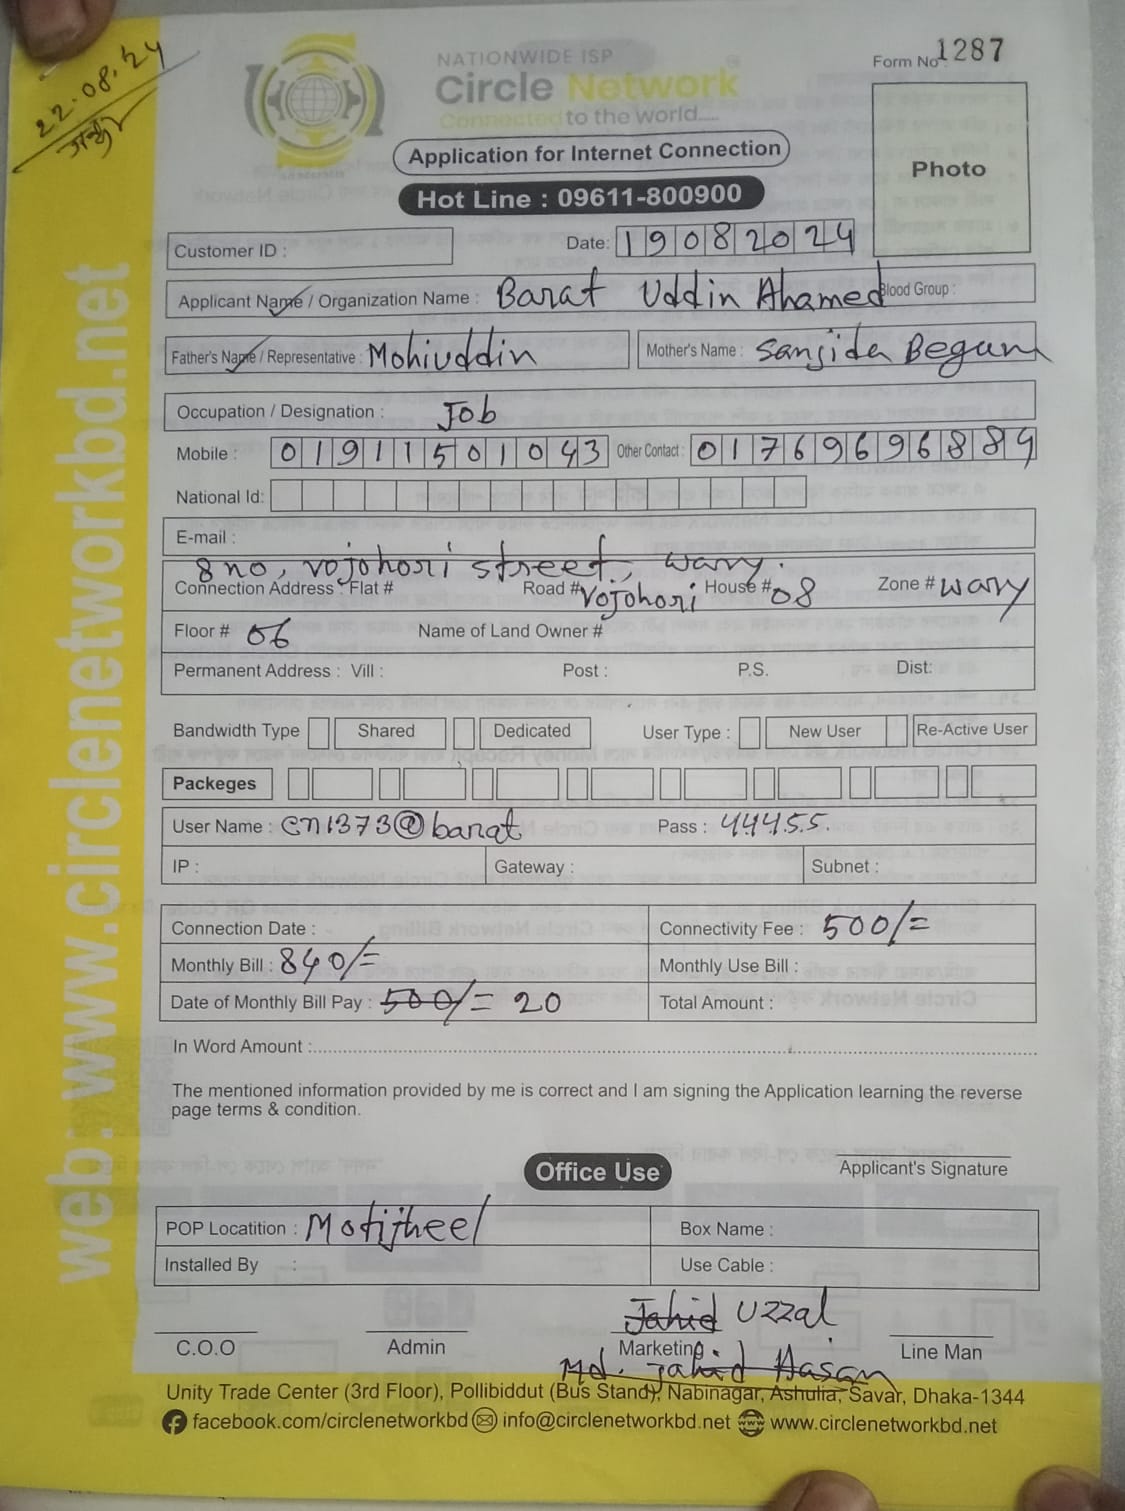 22.08.24
NATIONWIDE ISP
Circle Network
Connected to the world.....
Form No 1287
Application for Internet Connection
Photo
Hot Line : 09611-800900
Customer ID :
Date: 19082024
Applicant Name / Organization Name : Barat Uddin Ahamed Blood Group :
Father's Name / Representative : Mohiuddin Mother's Name : Sanjida Begum
Occupation / Designation : Job
Mobile : 01911501043 Other Contact : 01769696884
National Id:
E-mail :
8 no, vojohori street, wary.
Connection Address : Flat # Road # Vojohori House # 08 Zone # wary
Floor # 06 Name of Land Owner #
Permanent Address : Vill : Post : P.S. Dist:
Bandwidth Type Shared Dedicated User Type : New User Re-Active User
Packeges
User Name : cn1373@barat Pass : 44455.
IP : Gateway : Subnet :
Connection Date : Connectivity Fee : 500/=
Monthly Bill : 840/= Monthly Use Bill :
Date of Monthly Bill Pay : 500/= 20 Total Amount :
In Word Amount :
The mentioned information provided by me is correct and I am signing the Application learning the reverse
page terms & condition.
Applicant's Signature
Office Use
POP Locatition : Motijheel Box Name :
Installed By : Use Cable :
Jahid Uzzal
C.O.O Admin Marketing Line Man
Md. Jahid Hasan
Unity Trade Center (3rd Floor), Pollibiddut (Bus Stand), Nabinagar, Ashulia, Savar, Dhaka-1344
facebook.com/circlenetworkbd info@circlenetworkbd.net www.circlenetworkbd.net
web: www.circlenetworkbd.net